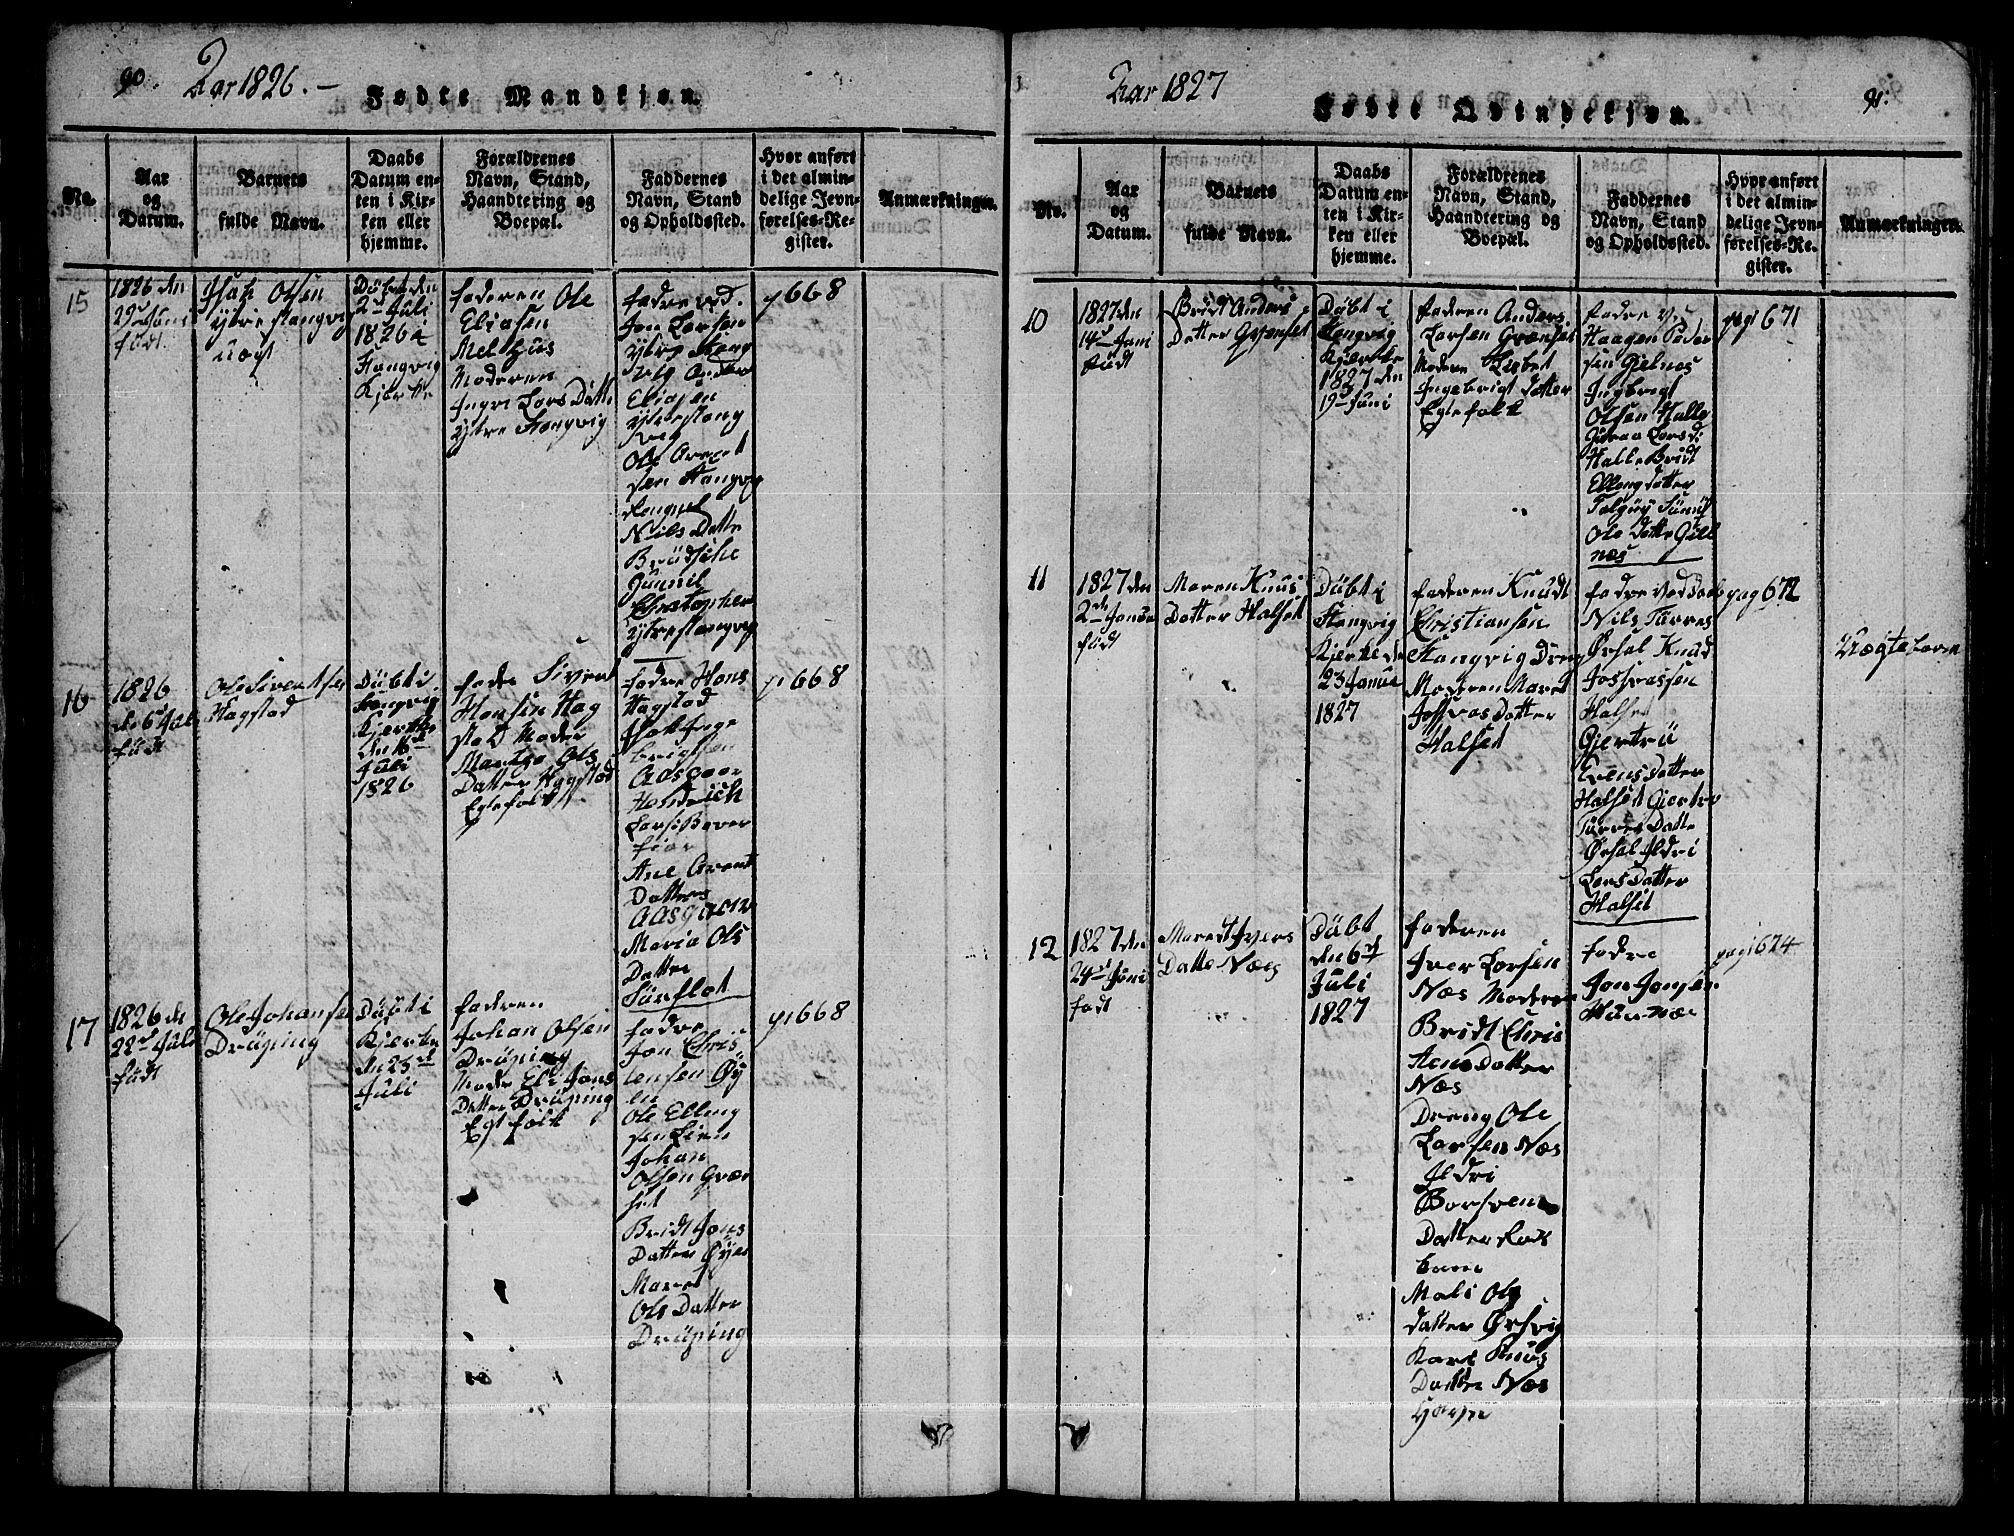 90.
Aar 1826.-
Fødte Mandkjøn.
No.
Aar
og
Datum.
Barnets
fulde Navn.
Daabs
Datum en-
ten i Kir-
ken eller
hjemme.
Forældrenes
Navn, Stand,
Haandtering og
Boepæl.
Faddernes
Navn, Stand
og Opholdssted.
Hvor anført
i det almin-
delige Jevn-
førelses-Re-
gister.
Anmærkninger.
15
1826 den
29de Juni
født
Isak Olsen
ytre stangvig
uegt
Døbt den
2d Juli
1826 i
Stangvig
Kjerke
faderen Ole
Eliasen
Melhus
Moderen
Ingri Lars Datte
ytre Stangvig
fadre ved
Jon Larsen
ytre Stang
vig
Eliasen
ytre stang
vig
Ole Arent
sen Stangvig
Nils Datte
Gunnil
Christopher
ytre stangvig
p 668
16
1826
de 6d Juli
født
Ole Sivertsen
Hagstad
Døbt i
Stangvig
Kjerke
den 16
Juli
1826
fader Sivert
Hansen Hag
stad Moder
Ols
Datter Hagstad
Egtefolk
fadre Hans
Hagstad
Isak Inge
brigtsen
Aasgaar
Hendrich
Larsi Bæver
fior
Ane Arent
Datters
Aasgaar
Maria Ols
Datter
Surflot
p 668
17
1826 de
22d Juli
født
Ole Johansen
Drøping
Døbt i
Kjerke
den 23d
Juli
faderen
Johan Olsen
Drøping
Moder Eli Jons
Datter Drøping
Egtfolk
fadre
Jon Chris
tensen Øy
en
Ole Elling
sen Lien
Johan
Olsen Græn
set
Bridt Jons
Datter Øyen
Maret
Ols Datter
Drøping
p 668
Aar 1827
Fødte Qvindekjøn.
91.
No.
Aar
og
Datum.
Barnets
fulde Navn.
Daabs
Datum en-
ten i Kir-
ken eller
hjemme.
Forældrenes
Navn, Stand,
Haandtering og
Boepæl.
Faddernes
Navn, Stand
og Opholdssted.
Hvor anført
i det almin-
delige Jevn-
førelses-Re-
gister.
Anmærkninger.
10
1827 den
14d Juni
født
Bridt Anders
Datter Grenset
Døbt i
Stangvig
Kjerke
1827 den
19d Juni
faderen Anders
Larsen Grænset
Modere Lisbet
Ingebrigt Datter
Egtefolk
fadre ved
Haagen Peder
sen Gielnes
Ingbrigt
Olsen Halle
Guraa Larsd.
Halle Bridt
Ellengdatter
Ole Datte Giel
næs
pag 671
11
1827 den
2d Janua
født
Maren Knus
Datter Halset
Døbt i
Stangvig
Kjerke de
23 Janua
1827
faderen Knudt
Christiansen
Stangvig Dreng
Moderen Maret
Datter
Halset
fadre ved Daab
Nils Tørres
Ørsal Knud
Josvassen
Halse
Gjertrü
Evens Datter
Halset Giertru
Tørres Datte
Ørsal Ildri
Lars Datter
Halset
pag 672
Uægte barn
12
1827 den
24d Juni
født
Maredt Ivers
Datte Næs
Døbt
den 6d
Juli
1827
faderen
Iver Larsen
Næs Modere
Bridt Chris
tens Datter
Næs
Dreng Ole
Larsen Næs
Ildri
Datter
Mali Ols
datter Ørsvig
Kari Knus
Datte Næs
fadre
Jon Jonsen
pag 674